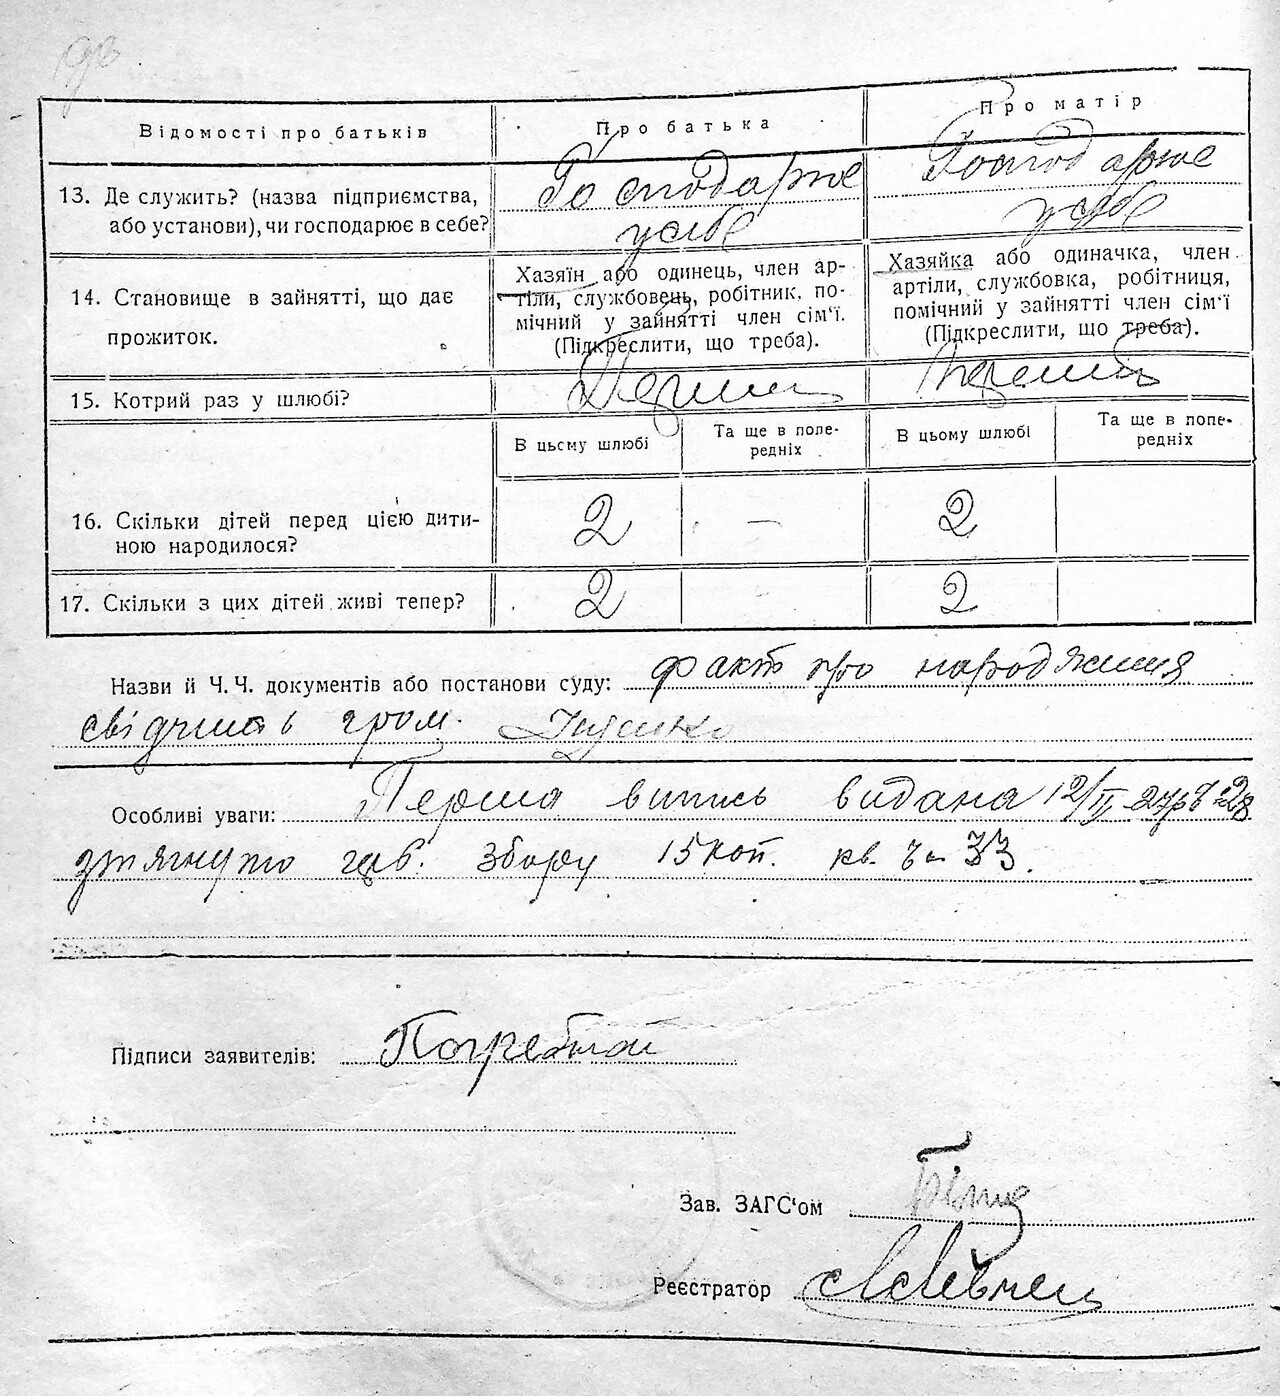 Відомості про батьків
Про батька
Про матір
13. Де служить? (назва підприємства, або установи), чи господарює в себе?
Господарює
у себе
Господарює
у себе
14. Становище в зайнятті, що дає
прожиток.
Хазяїн або одинець, член ар-
тіли, службовець, робітник, по-
мічний у зайнятті член сім'ї.
(Підкреслити, що треба).
Хазяйка або одиначка, член
артіли, службовка, робітниця,
помічний у зайнятті член сім'ї
(Підкреслити, що треба).
15. Котрий раз у шлюбі?
Перший
Перший
В цьому шлюбі
Та ще в попе-
редніх
В цьому шлюбі
Та ще в попе-
редніх
16. Скільки дітей перед цією дити-
ною народилося?
2 —
2
17. Скільки з цих дітей живі тепер?
2
2
Назви й Ч. Ч. документів або постанови суду: факт про народження
свідчить гром.
Особливі уваги: Перша випись видана 12/II
стягнуто герб. збору 15 коп. кв. Ч 33.
Підписи заявителів: Погребной
Зав. ЗАГС'ом
Реєстратор